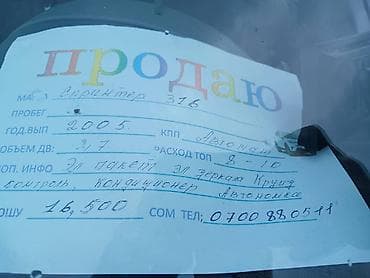 продаю
МА Спринтер 316
ПРОБЕГ
ГОД.ВЫП 2005. КПП Автомат
ОБЪЕМ ДВ: 2,7 РАСХОД ТОП 8-10
ОП. ИНФО Эл пакет эл зеркала Круиз
контроль, Кондиционер Автономка
ОШУ 16,500 СОМ ТЕЛ; 0700880511